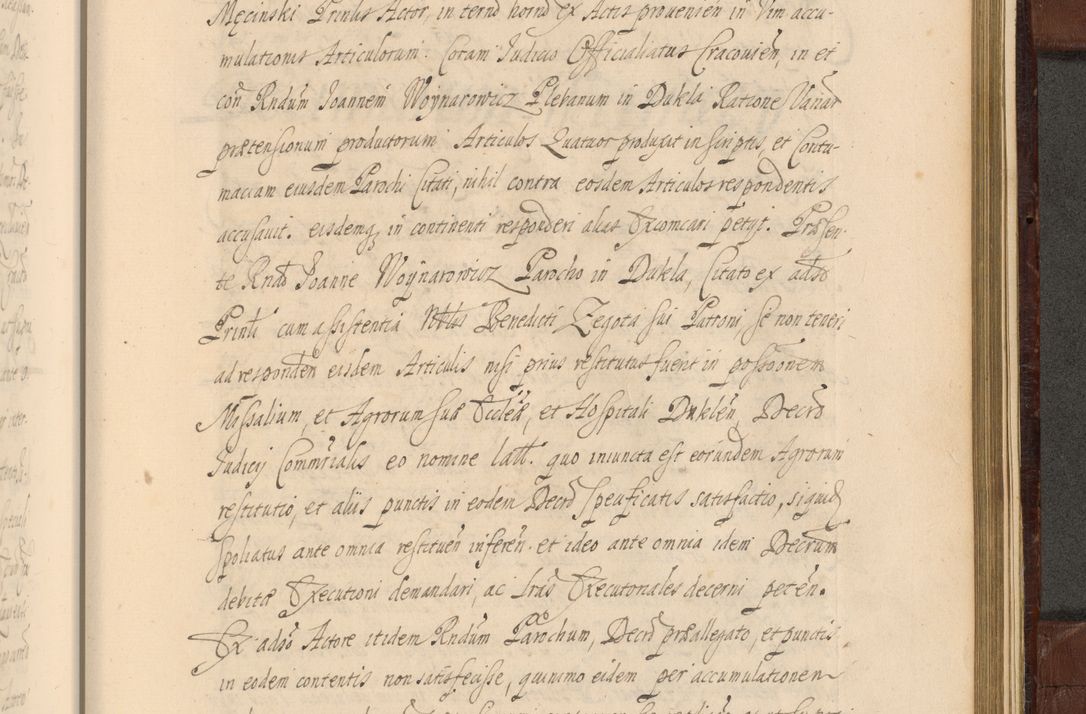 Męcinski Prinlis Actor, in termo hornd ex Actis prouenien in Vim accu-
mulationis Articulorum. Coram Judicio Officialiatus Cracouien, in et
con Rndum Joannem Woynarowicz Plebanum in Dukla Ratione Vanar
prætensionum productorum Articulos Quatuor produxit in scriptis, et Contu-
maciam eiusdem Parochi Citati, nihil contra eosdem Articulos respondentis
accusauit. eisdemq in continenti responderi alias Excomcari petyt. Præsen-
te Rndo Joanne Woynarowicz Parocho in Dukla, Citato ex adso
Prinli cum assistentia Nblis Benedicti Zegota sui Patroni, se non teneri
ad responden eisdem Articulis nisi prius restitutus fuerit in possonem
Missalium, et Agrorum suæ Eccleæ, et Hospitali Duklen, Decro
Judicij Commrialis eo nomine latt. quo iniuncta est eorundem Agrorum
restitutio, et aliis punctis in eodem Decro specificatis satisfactio, siquid
spoliatus ante omnia restituen inferen. et ideo ante omnia idem Decrum
debitæ Executioni demandari, ac lras Executoriales decerni peten.
Ex adso Actore itidem Rndum Parochum, Decro præallegato, et punctis
in eodem contentis non satisfecisse, quinimo eidem per accumulationem